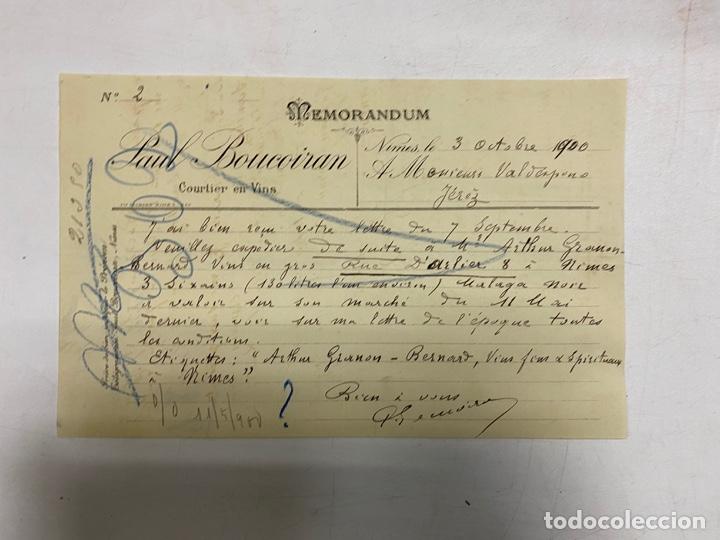 Nº 2
MEMORANDUM
Paul Boucoiran
Courtier en Vins
Nîmes, le 3 Octobre 1900
A Monsieurs Valdespino
Jéréz
J'ai bien reçu votre lettre du 7 Septembre.
Veuillez expédier de suite à Mr Arthur Granon-
Bernard Vins en gros Rue D'arlier 8 à Nîmes
3 Sixains (130 litres l'un environ) Malaga noir
à valoir sur son marché du 11 Mai
dernier, voir sur ma lettre de l'époque toutes
les conditions.
Etiquettes: "Arthur Granon-Bernard, Vins fins & Spiritueux
à Nîmes".
Bien à vous
?
11/5/900
todocoleccion.net